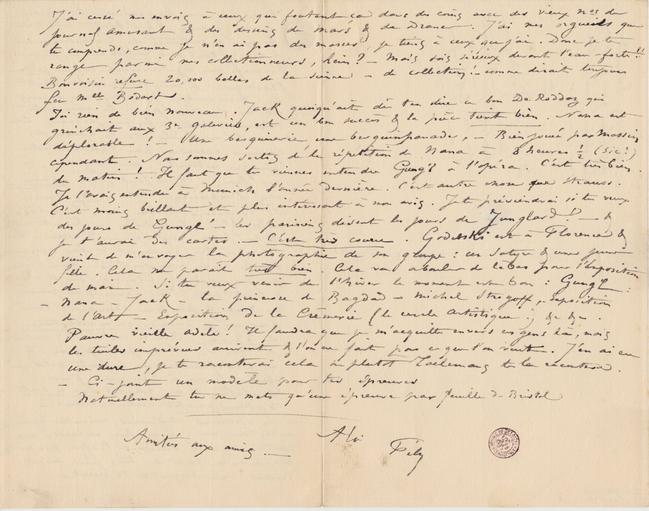 J'ai cessé mes envois à ceux que foutent ça dans des coins avec des vieux nos de
journal amusant & des dessins de Mars & de Draner. J'ai mes orgueils que
tu comprends, comme je n'en ai pas des masses, je tiens à ceux que j'ai. Donc je te
range parmi mes collectionneurs, hein? - Mais sois sérieux devant l'eau-forte!!
Bonvoisin refuse 20,000 belles de la sienne - de collection! comme dirait toujours
feu Mlle Bodart.
J'ai rien de bien nouveau. Jack quoiqu'ait dû t'en dire ce bon De Reddoz qui
grinchait aux 3e galeries, est un bon succès & la pièce tout bien. Nana est
déplorable! - Une berquinerie une berquinade, - Bien joué par Massin
cependant. Nous sommes sortis de la répétition de Nana à 4 heures 1/2 (sic!)
du matin! Il faut que tu viennes entendre Gung'l à l'opéra. C'est très bien.
Je l'avais entendu à Munich l'année dernière. C'est autre chose que Strauss.
C'est moins brillant et plus intéressant à mon avis. Je te préviendrai si tu veux
du jour de Gung'l - les parisiens disent les jours de Junglard! - &
je t'aurai des cartes. - C'est très couru. Godebski est à Florence &
vient de m'envoyer la photographie de son groupe: un Satyre & une jeune
fille. Cela me paraît très bien. Cela va abouler de là-bas pour l'exposition
de mai. Si tu veux venir de l'hiver le moment est bon: Gung'l
- Nana - Jack la princesse de Bagdad - Michel Strogoff, exposition
de l'Art - Exposition de la Crémerie (le cercle Artistique), &. &.
Pauvre vieille Adèle! Il faudra que je m'acquitte envers ces gens là, mais
les tuiles imprévues arrivent & l'on ne fait pas ce que l'on veut. J'en ai eu
une dure, je te raconterai cela ou plutôt Thélémans te la racontera.
- Ci-joint un modèle pour tes épreuves
Naturellement tu ne mets qu'une épreuve par feuille de Bristol
Amitiés aux amis -
A toi
Fély